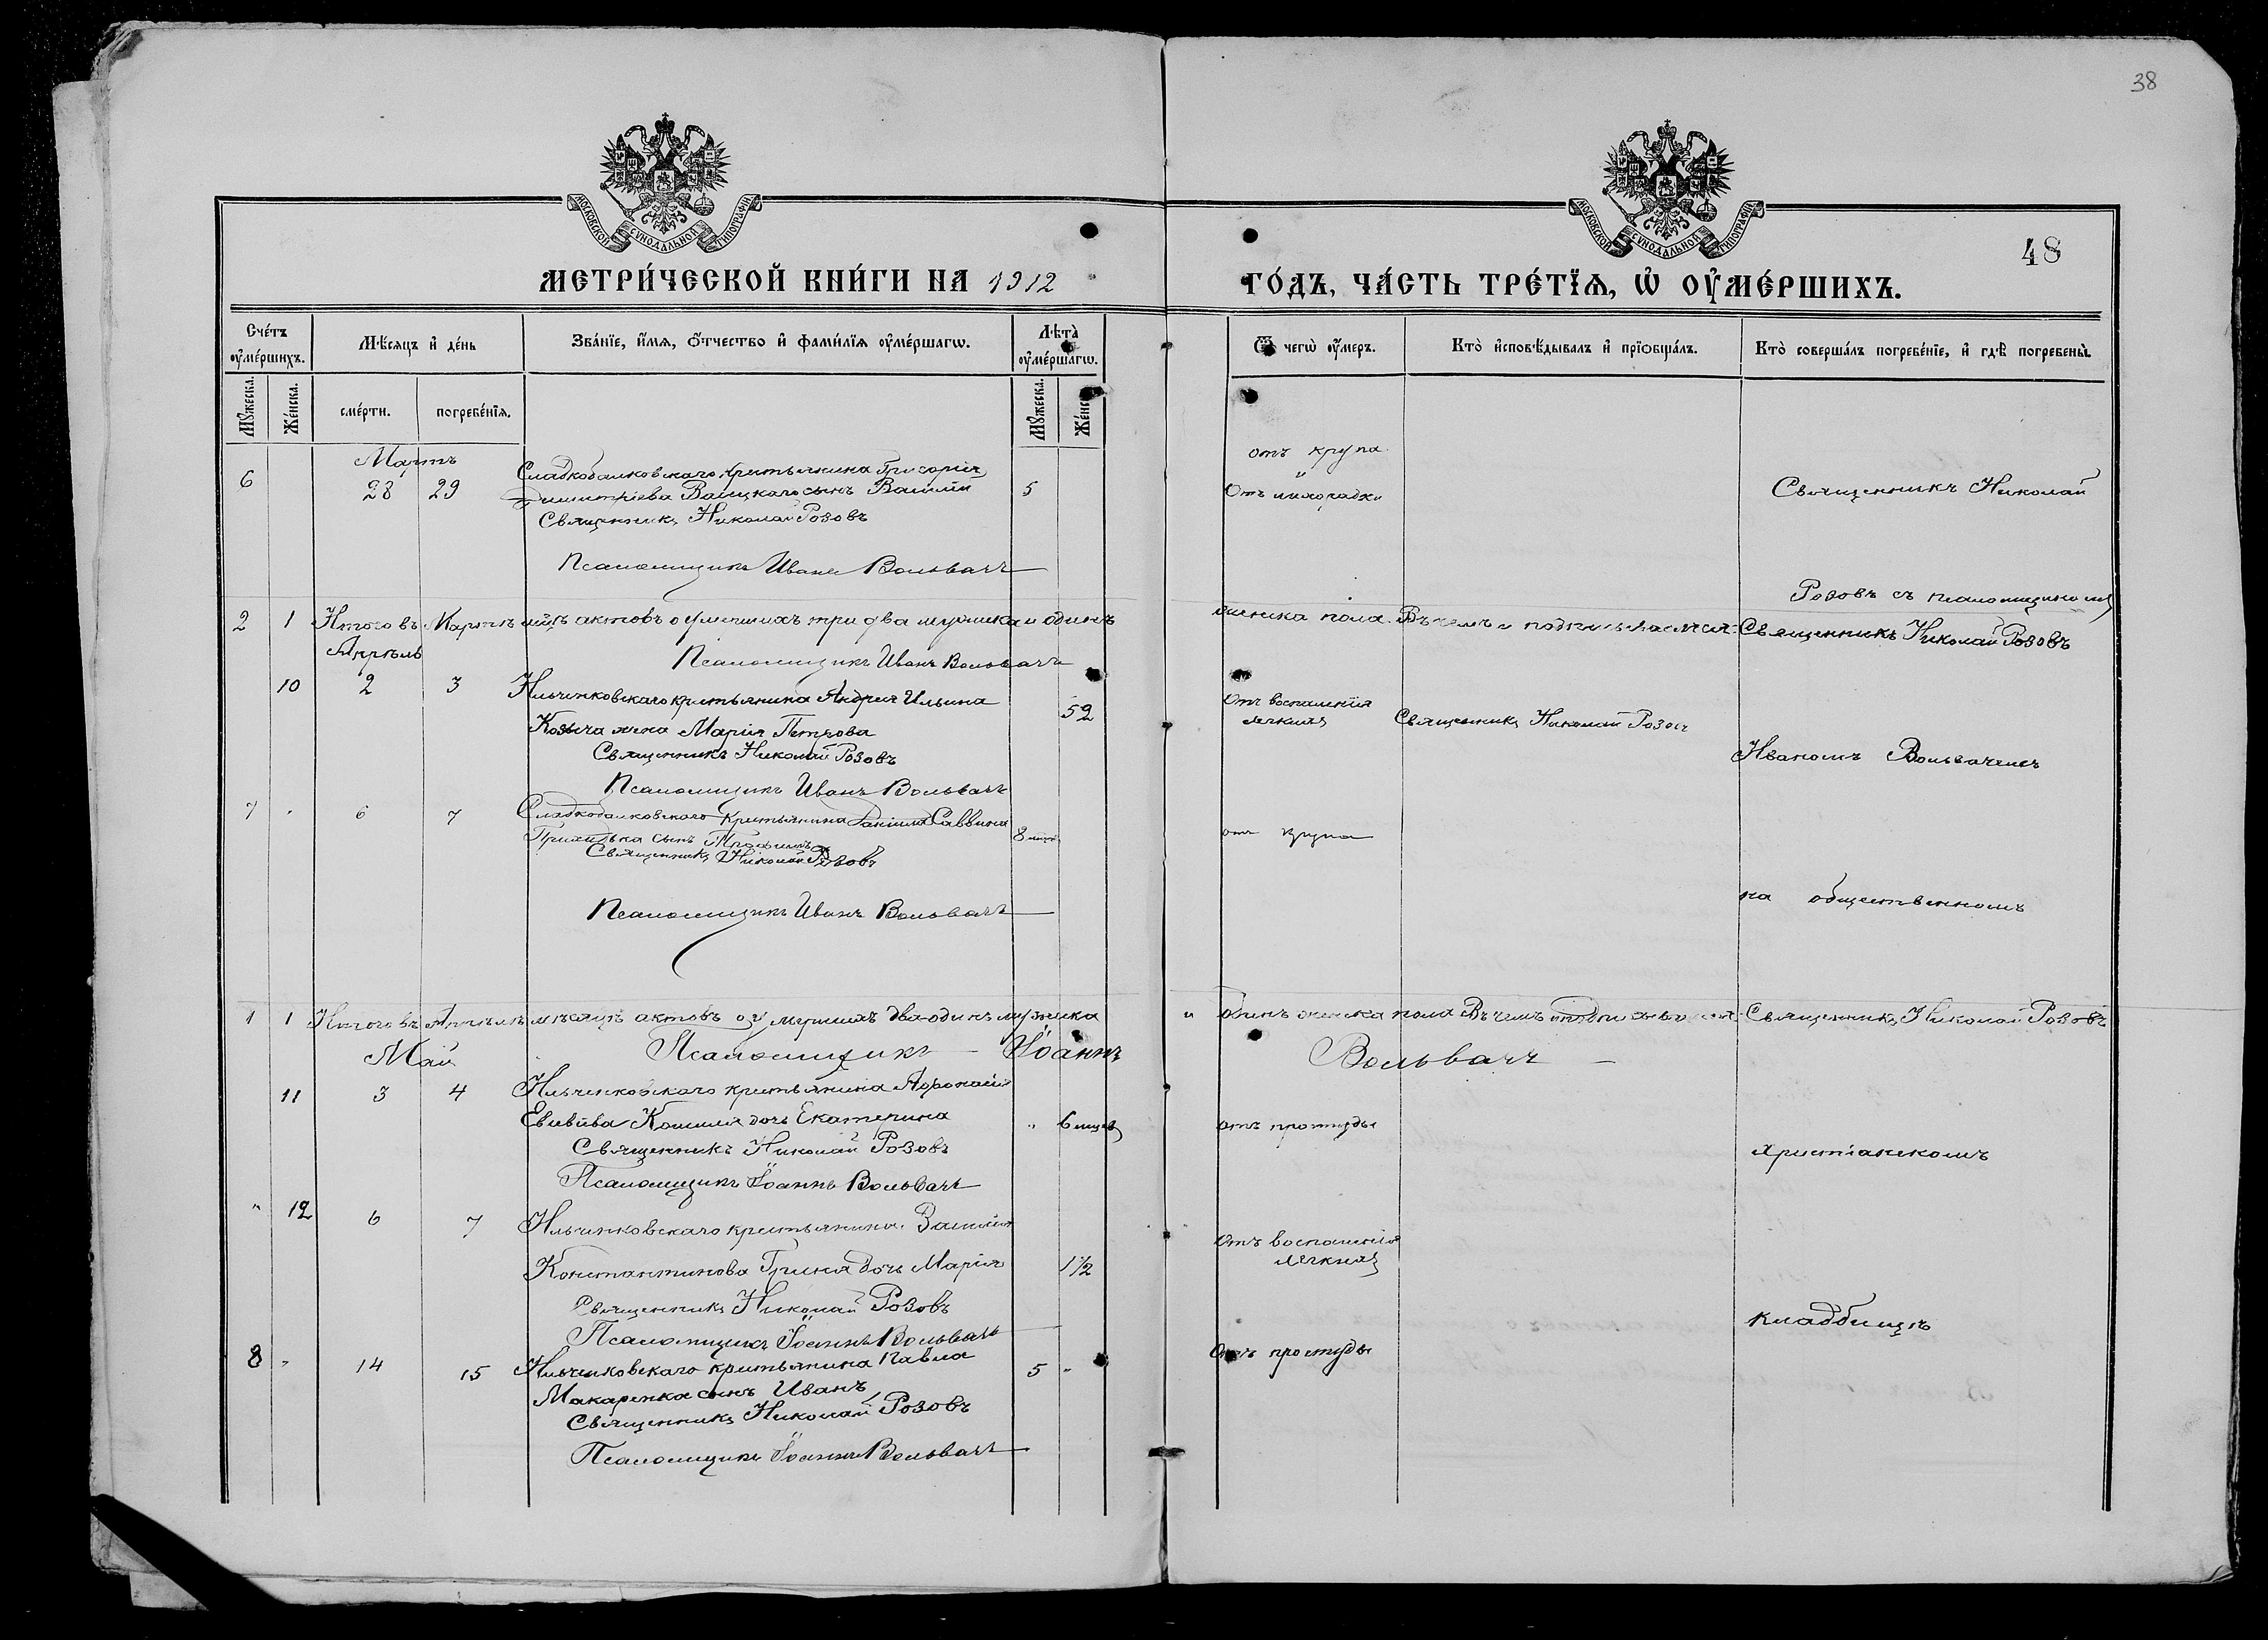 38
МОСКОВСКОЙ СѴНОДАЛЬНОЙ ТИПОГРАФІИ
МОСКОВСКОЙ СѴНОДАЛЬНОЙ ТИПОГРАФІИ
48
МЕТРИ́ЧЕСКОЙ КНИ́ГИ НА 1912
ГО́ДЪ, ЧА́СТЬ ТРЕ́ТЇѦ, Ѡ҆ ОУ҆МЕ́РШИХЪ.
Сче́тъ оу҆ме́ршихъ.
Мꙋ́жеска.
Же́нска.
Мѣ́сяцъ и҆ де́нь
сме́рти.
погребе́нїѧ.
Зва́нїе, и҆́мѧ, ѻ҆́тчество и҆ фами́лїѧ оу҆ме́ршагѡ.
Лѣ́та оу҆ме́ршагѡ.
Мꙋ́жеска.
Же́нс
Ѿ чегѡ̀ оу҆́меръ.
Кто̀ и҆сповѣ́дывалъ и҆ прїѡбща́лъ.
Кто̀ соверша́лъ погребе́нїе, и҆ гдѣ̀ погребены̀.
Мартъ
6 28 29 Сладкобалковскаго крестьянина Григорія
Димитріева сынъ Василій 5
Священникъ Николай Розовъ
Псаломщикъ Иванъ Вольвачъ
отъ крупа
и
Отъ лихорадки
Священникъ Николай
Розовъ съ псаломщикомъ
2 1 Итого въ Мартѣ м-цѣ актовъ о умершихъ три два мужска и одинъ
женска пола. Въ чемъ и подписываемся: Священникъ Николай Розовъ
Апрѣль
Псаломщикъ Иванъ Вольвачъ
10 2 3 Ильченковскаго крестьянина Андрея Ильина
Козыча жена Марія Петрова 52
Священникъ Николай Розовъ
Псаломщикъ Иванъ Вольвачъ
Отъ воспаленія
легкихъ
Священникъ Николай Розовъ
Иваномъ Вольвачемъ
7 " 6 7 Сладкобалковскаго крестьянина Даніила Саввина
сынъ Трофимъ 8
Священникъ Николай Розовъ
Псаломщикъ Иванъ Вольвачъ
отъ крупа
на общественномъ
1 1 Итого въ Апрѣлѣ мѣсяцѣ актовъ о умершихъ два одинъ мужска
и одинъ женска пола Въ чемъ и подписываемся: Священникъ Николай Розовъ
Май
Псаломщикъ Іоаннъ
Вольвачъ
11 3 4 Ильченковскаго крестьянина
дочь Екатерина " 6 мцев
Священникъ Николай Розовъ
Псаломщикъ Іоаннъ Вольвачъ
отъ простуды
христіанскомъ
" 12 6 7 Ильченковскаго крестьянина Василія
Константинова дочь Марія 1½
Священникъ Николай Розовъ
Псаломщикъ Іоаннъ Вольвачъ
Отъ воспаленія
легкихъ
кладбищѣ
8 " 14 15 Ильченковскаго крестьянина Павла
Макаренка сынъ Иванъ 5 "
Священникъ Николай Розовъ
Псаломщикъ Іоаннъ Вольвачъ
Отъ простуды